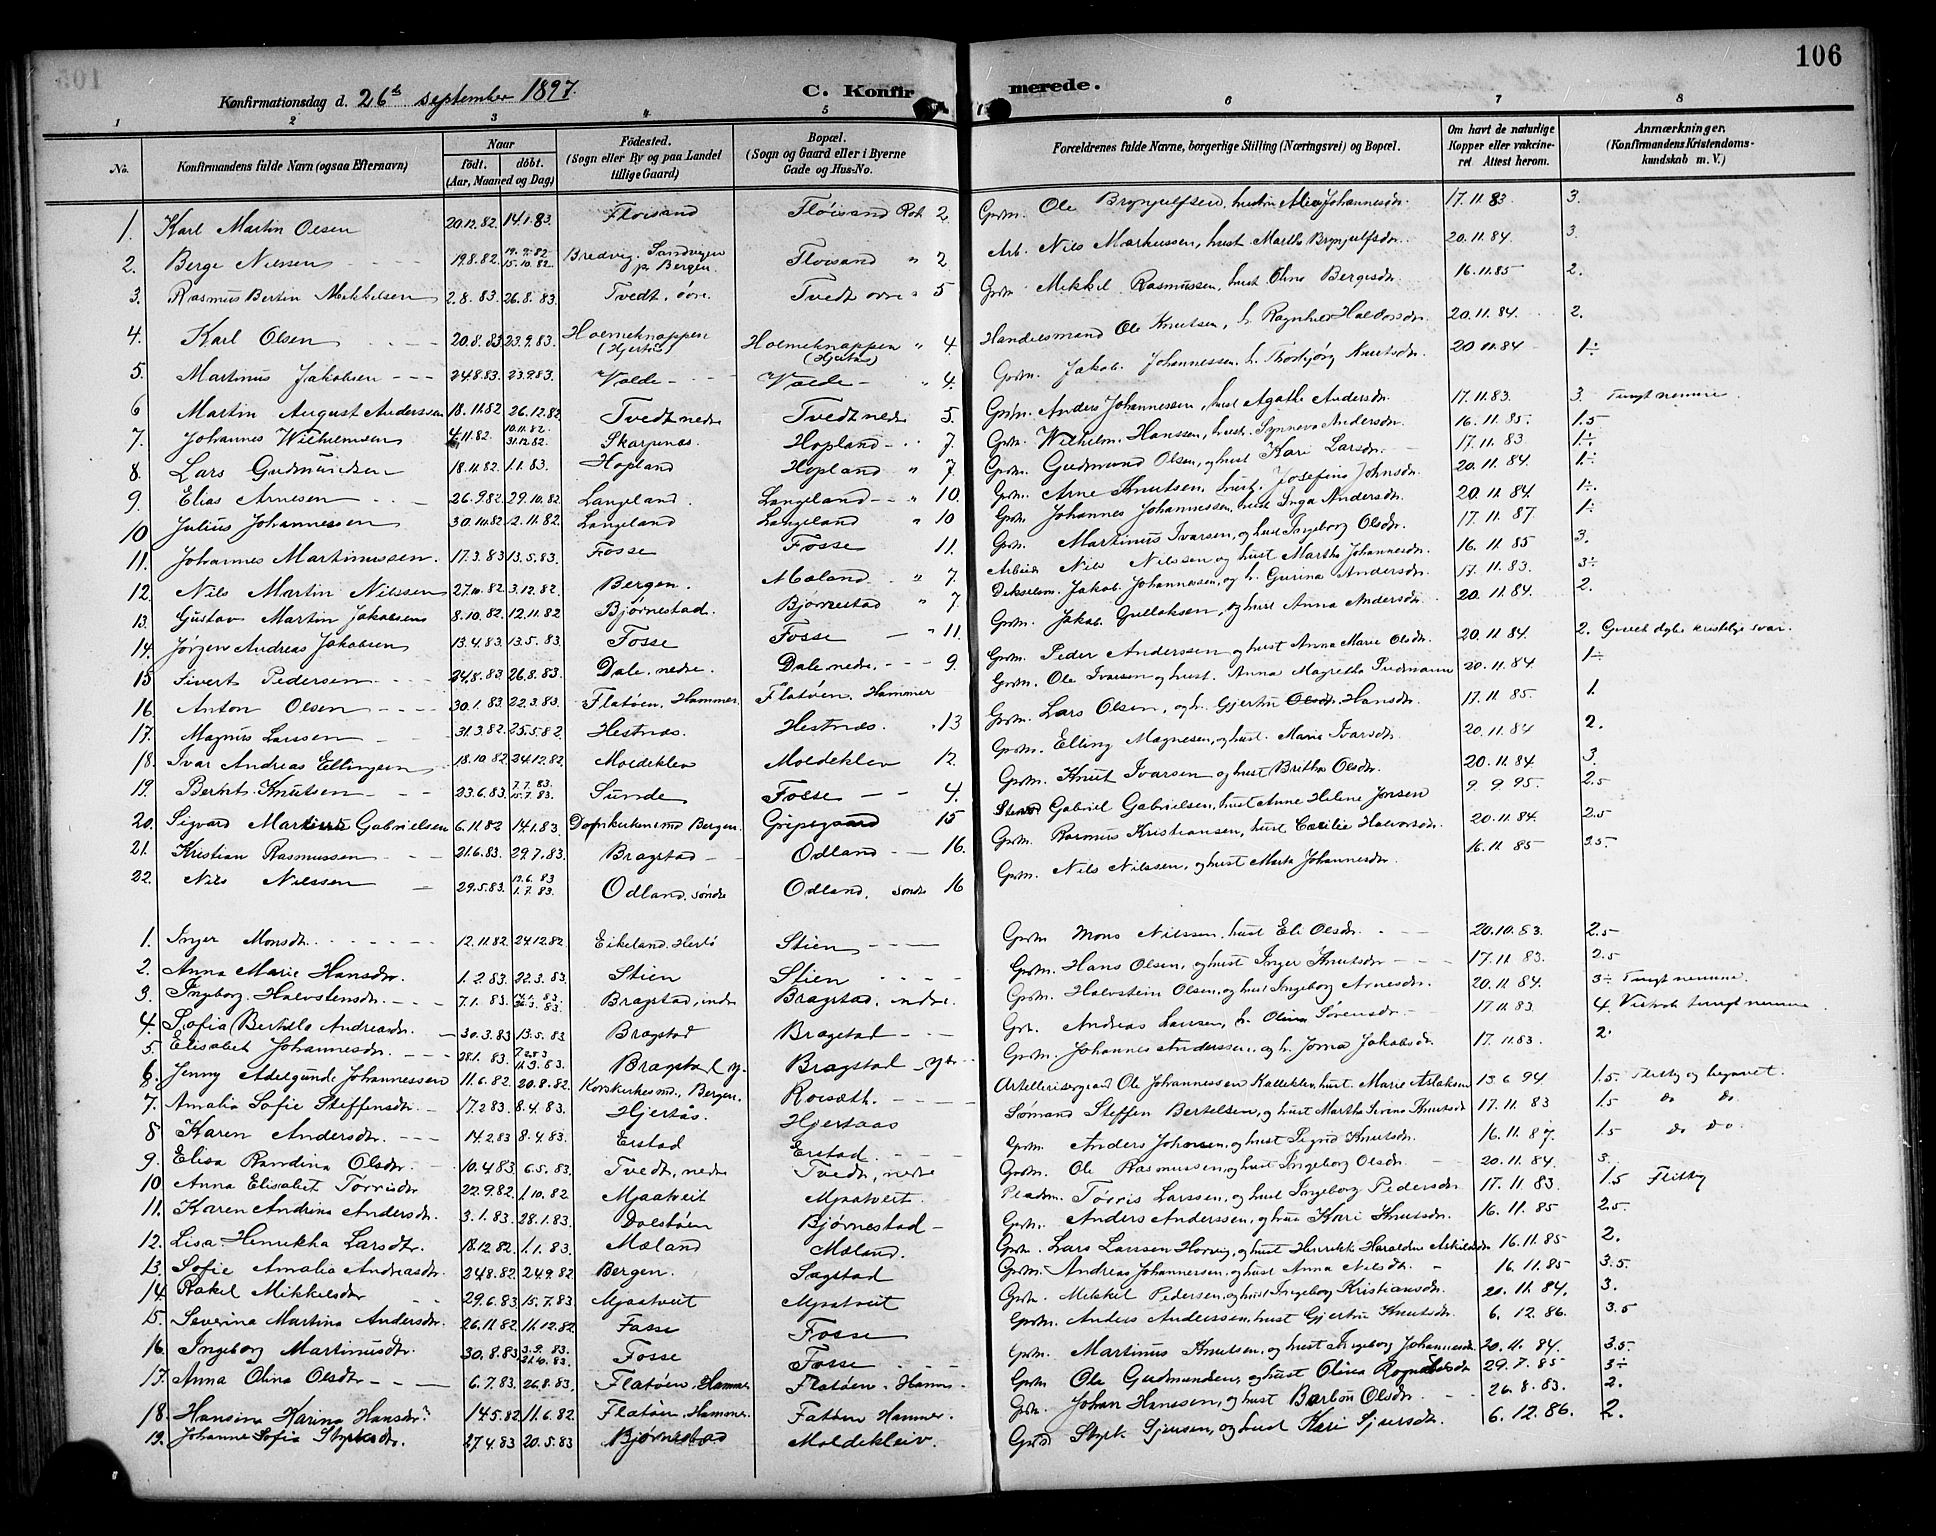 106
Konfirmationsdag d. 26de september 1897.
C. Konfirmerede.
1 2 3 4 5 6 7 8
No. Konfirmandens fulde Navn (ogsaa Efternavn) Naar födt. döbt. (Aar, Maaned og Dag) Födested. (Sogn eller By og paa Landet tillige Gaard) Bopæl. (Sogn og Gaard eller i Byerne Gade og Hus-No. Forældrenes fulde Navne, borgerlige Stilling (Næringsvei) og Bopæl. Om havt de naturlige Kopper eller vakcineret Attest herom. Anmærkninger. (Konfirmandens Kristendomskundskab m. V.)
1. Karl Martin Olsen 20.12.82 14.1.83. Floisand Floisand Rode 2 Grdm. Ole Brynjulfsen, hustru Johannesdr. 17.11.83 3.
2. Berge Nilssen 19.8.82 19.9.82 15.10.82 Bredvig, Sandvigen p. Bergen. Floisand " 2 Arb. Nils Markussen, hust. Martha Brynjulfsdr. 20.11.84. 3.
3. Rasmus Bertin Mikkelsen 2.8.83. 26.8.83. Tvedt, øvre. Tvedt øvre " 5 Grdm. Mikkel Rasmussen, hust Oline Bergesdr. 16.11.85 2.
4. Karl Olsen 20.8.83 23.9.83. Holmeknappen (Hjertås) Holmeknappen (Hjertås) " 4. Handelsmand Ole Knutsen, h. Ragnhild Haldorsdr. 20.11.84. 2.
5. Martinus Jakobsen 24.8.83. 23.9.83. Valde Valde " 4. Grdm. Jakob Johannessen, h. Thorbjørg Knutsdr. 20.11.84 1÷
6 Martin August Anderssen 18.11.82 26.12.82 Tvedt nedre Tvedt nedre 5. Grdm. Anders Johannessen, hust Agathe Andersdr. 17.11.83. 3. Tungt nemme.
7. Johannes Wilhelmsen 4.11.82. 10.11.82 31.12.82. Skarpnæs. Hopland 7 Grdm. Wilhelm Hanssen, hust. Synneva Andersdr. 16.11.85. 1.5
8 Lars Gudmundsen 18.11.82 1.1.83. Hopland Hopland " 7. Grdm. Gudmund Olsen, og hust Kari Larsdr. 17.11.83 1÷
9. Elias Arnesen 26.9.82 29.10.82 Langeland. Langeland " 10. Grdm. Arne Knutsen, hust. Josefine Johnsdr. 20.11.84. 1÷
10 Julius Johannessen 30.10.82 12.11.82. Langeland Langeland " 10 Grdm. Johannes Johannessen, hust Inga Andersdr. 20.11.84. 1÷
11. Johannes Martinussen. 17.3.83 13.5.83. Fosse Fosse 11. Grdm. Martinus Ivarsen, og hust Ingeborg Olsdr. 17.11.87. 1÷
12. Nils Martin Nilssen 27.10.82 3.12.82. Bergen. Mæland " 7. Arbeid. Nils Nilssen og hust Martha Johannesdr. 16.11.85 3.
13. Gustav Martin Jakobsen 8.10.82 12.11.82 Bjørnestad. Bjørnestad " 7. Jakob Johannessen, og h. Gurina Andersdr. 17.11.83. 3÷
14. Jørgen Andreas Jakobsen 13.4.83. 13.5.83. Fosse Fosse " 11. Grdm. Jakob Gullaksen, og hust Anna Andersdr. 20.11.84. 2.
15 Sivert Pedersen 24.8.83. 26.8.83. Dale, nedre. Dale nedre. 9. Grdm. Peder Anderssen og hust Anna Marie Olsdr. 20.11.84. 2. kristelige svar.
16. Anton Olsen 30.1.83. 22.3.83. Flatøen, Hammer. Flatøen, Hammer Grdm. Ole Ivarsen og hust. Anna Magretha 20.11.84. 1÷
17. Magnus Larssen 31.3.82. 25.5.82. Hestnæs. Hestnæs. " 13 Grdm. Lars Olsen, og h. Gjertru Olsdr. Hansdr. 17.11.85. 1.
18. Ivar Andreas Ellingsen 18.10.82 24.12.82. Moldeklev Moldeklev 12. Grdm. Elling Magnesen, og hust. Marie Ivarsdr. 20.11.84 2.
19. Bernt Knutsen 23.6.83. 7.7.83. 15.7.83. Sunde Fosse 4. Grdm. Knut Ivarsen og hust Britha Olsdr. 20.11.84 3.
20. Sigvard Gabrielsen 6.11.82 14.1.83. Domkirkens md Bergen. Gripsgaard 15 Gabriel Gabrielsen, hust Anne Helene Jonsen 9.9.95. 2.5
21. Kristian Rasmussen 21.6.83. 29.7.83. Bragstad Odland 16. Grdm. Rasmus Kristiansen, hust Cecilie Halvorsdr. 20.11.84. 2.5
22. Nils Nilssen 29.5.83. 17.6.83 1.7.83. Odland, søndre Odland, søndre 16 Grdm. Nils Nilssen, og hust Marta Johannesdr. 16.11.85 3.5
1. Inger Monsdr. 12.11.82. 24.12.82 Eikeland, Herlø Stien Grdm Mons Nilssen, hust Eli Olsdr. 20.10.83. 2.5
2. Anna Marie Hansdr. 1.2.83. 22.3.83. Stien Stien Grdm. Hans Olsen, og hust Inger Knutsdr. 17.11.83. 2.5
3. Ingeborg Halvstensdr. 7.1.83. Bragstad, indre Bragstad, indre. Grdm. Halvstein Olsen, og hust Ingeborg Arnesdr. 20.11.84. 3÷ Tungt nemme.
4. Sofia Berthilo Andreasdr. 30.3.83 13.5.83. Bragstad Bragstad Andreas Larssen, h. Olina Sørensdr. 17.11.83 4. tungt nemme
5. Elisabet Johannesdr. 28.1.83. 7.2.83 11.3.83. Bragstad y. Bragstad ytre. Grdm. Johannes Anderssen, og h. Jorna Jakobsdr. 17.11.83. 2.
6. Jenny Adelgunde Johannessen 11.6.82. 20.8.82. Korskirkens md, Bergen. Rossæth. Artillerisergeant Ole Johannessen Kalleklev, hust. Marie Aslaksen 13.6.94. 1.5. Flittig og begavet.
7. Amalia Sofie Steffensdr. 17.2.83 8.4.83. Hjertås Hjertaas Sømand Steffen Bertelsen, og hust Martha Sevrine Knutsdr. 17.11.83 1.5 do do.
8 Karen Andersdr. 14.2.83 8.4.83. Erstad Erstad. Grdm. Anders Johansen, og hust Sigrid Knutsdr. 16.11.87. 1.5 do do.
9. Elisa Randina Olsdr. 10.4.83. 6.5.83. Tvedt, nedre Tvedt, nedre Grdm. Ole Rasmussen, og hust Ingeborg Olsdr. 20.11.84. 3.
10. Anna Elisabet Torrisdr. 22.9.82. 1.10.82 Mjaatveit Mjaatveit. Pladsm. Torris Larssen, og hust Ingeborg Pedersdr. 17.11.83. 1.5 Flittig
11. Karen Andrina Andersdr. 3.1.83. 28.1.83. Dalstøen Bjørnestad Grdm. Anders Anderssen, og hust Kari Knutsdr. 16.11.85 2.5.
12. Lisa Henrikka Larsdtr. 18.12.82 1.1.83. Mæland Mæland. Grdm. Lars Larssen Horvig, og hust Henrikk Haraldine Askildsdr 16.11.85 2.
13. Sofie Amalia Andreasdr. 24.8.82. 24.9.82 Bergen. Sagstad Grdm. Andreas Johannessen, og hust Anna Nilsdr. 16.11.85 3.5.
14. Rakel Mikkelsdr 29.6.83. 15.7.83 Mjaatveit Mjaatveit Grdm. Mikkel Pedersen, og hust Ingeborg Kristiansdr. 20.11.84. 3.
15. Severina Martina Andersdr. 26.11.82. 11.12.82 Fosse Fosse Grdm. Anders Anderssen, hust Gjertru Knutsdr. 6.12.86. 3.5
16. Ingeborg Martinusdtr. 30.8.83 3.9.83. 21.10.83. Fosse Fosse Grdm. Martinus Knutsen, og hust Ingeborg Johannesdr 20.11.84. 3.5.
17. Anna Olina Olsdtr 6.7.83. 26.8.83. Flatøen, Hammer Flatøen, Hamm. Grdm. Ole Gudmundsen, og hust Olina Rognaldsdr 29.7.85 3÷
18. Hansina Karina Hansdr. 14.5.82 11.6.82. Flatøen, Hammer. Fatøen Hammer. Grdm. Johan Hanssen, og hust Barbou Olsdr. 26.8.83. 2.
19. Johanne Sofia Styrksdr. 27.4.83 20.5.83 Bjørnestad Moldekleiv. Grdm Styrk Sjursen, og hust Kari Sjursdr. 6.12.86. 2.